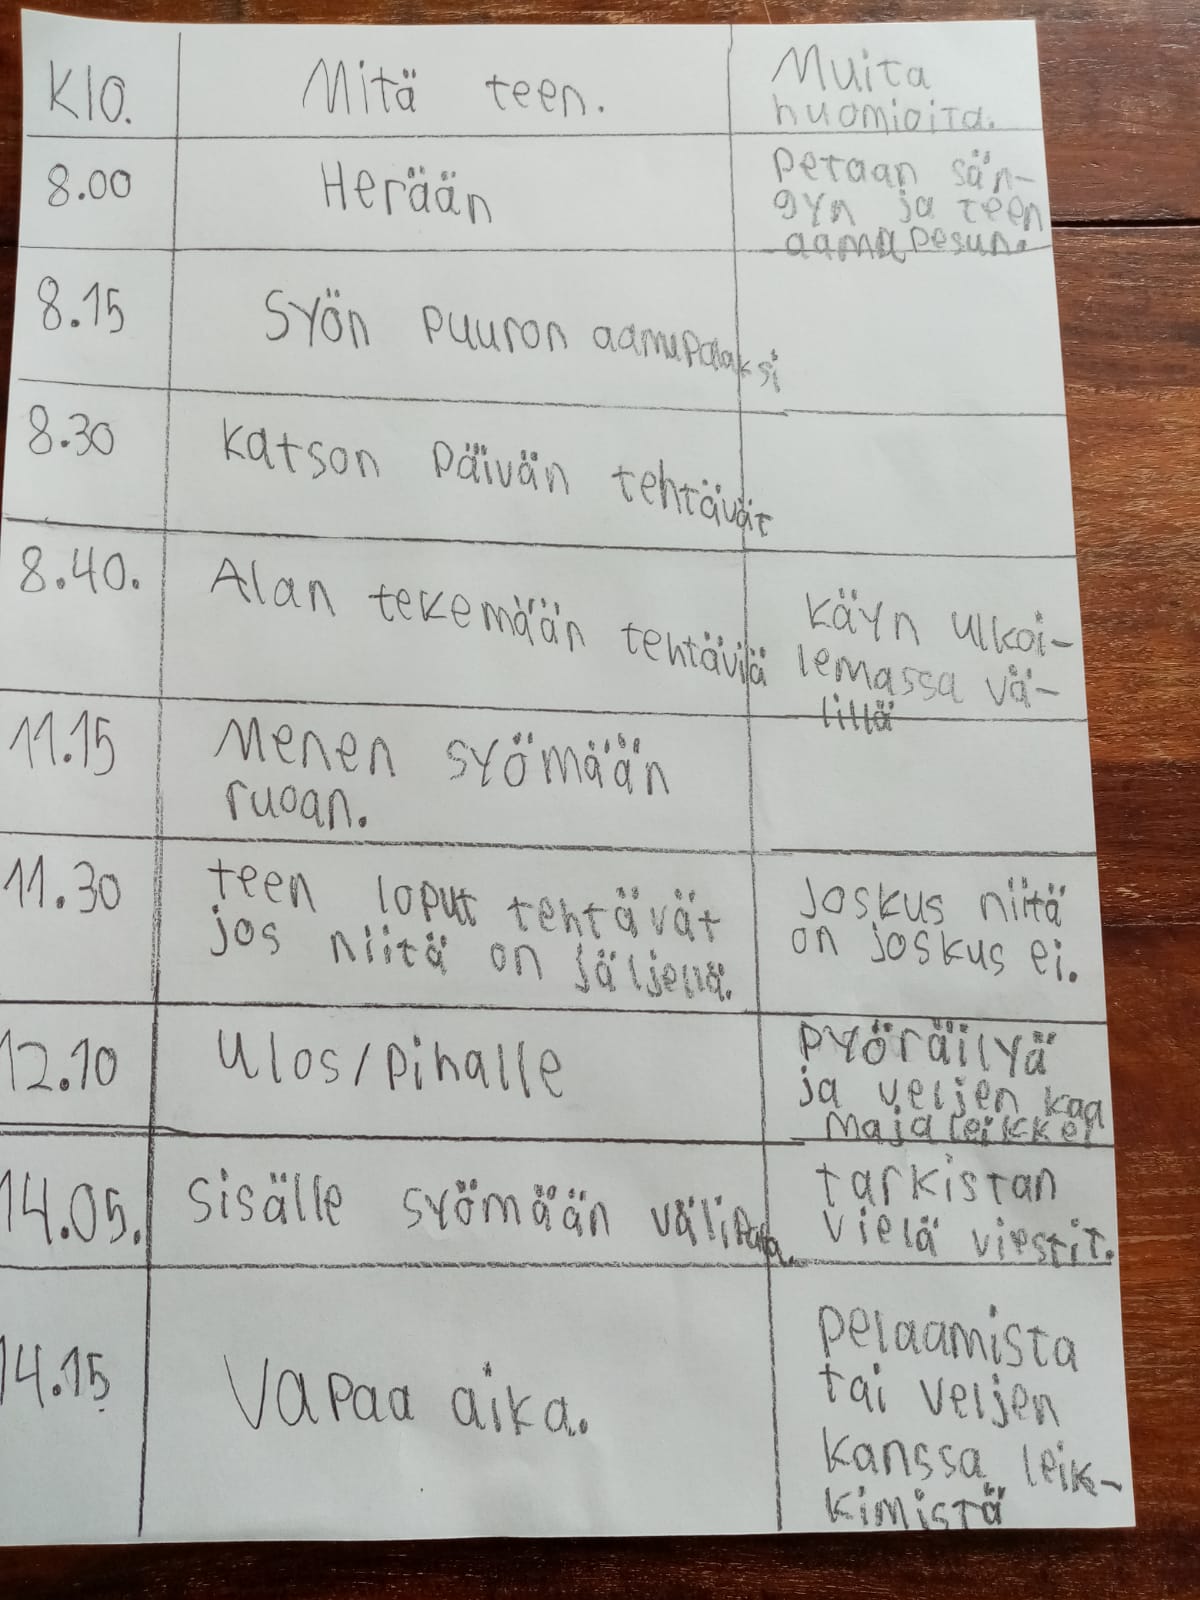 Klo.
Mitä teen.
Muita
huomioita.
8.00
Herään
petaan sän-
gyn ja teen
aamupesun.
8.15
Syön puuron aamupalaksi
8.30
Katson päivän tehtävät
8.40.
Alan tekemään tehtäviä
Käyn ulkoi-
lemassa vä-
lillä
11.15
Menen syömään
ruoan.
11.30
teen loput tehtävät
jos niitä on jäljellä.
Joskus niitä
on joskus ei.
12.10
Ulos/pihalle
pyöräilyä
ja veljen kaa
majaleikkei
14.05.
Sisälle syömään välipala.
tarkistan
vielä viestit.
14.15
Vapaa aika.
pelaamista
tai veljen
kanssa leik-
kimistä